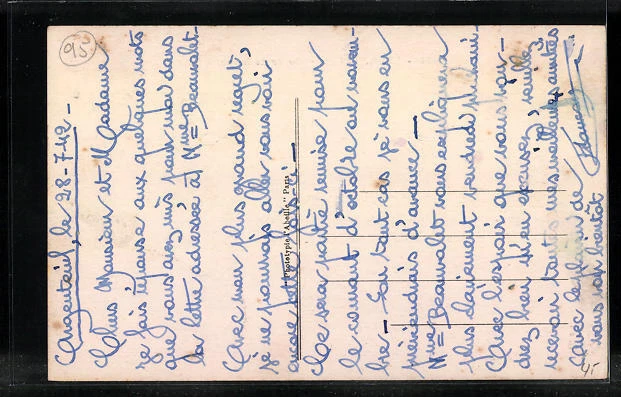 95
Argenteuil, le 28-7-42-
Chers Monsieur et Madame
Je fais réponse aux quelques mots
que vous avez mis pour moi dans
la lettre adressée à Mme Beauvalet-
Avec mon plus grand regret,
je ne pourrais aller vous voir
encore cette fois-ci-
Ce sera partie remise pour
le courant d'octobre ou novem-
bre- En tout cas je vous en
préviendrais d'avance-
Mme Beauvalet vous expliquera
plus clairement vendredi prochain-
Avec l'espoir que vous vou-
drez bien m'en excuser, veuillez
recevoir toutes mes meilleures amitiés
Avec le plaisir de
vous voir bientôt
"Phototypie "Abeille" Paris